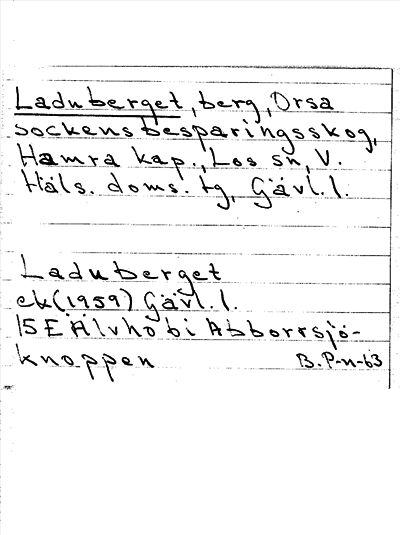 Laduberget, berg, Orsa
sockens besparingsskog,
Hamra kap., Los sn, V.
Häls. doms. tg, Gävl. l.
Laduberget
ek (1959) Gävl. l.
15 E Älvho bi Abborrsjö-
knoppen B. P-n-63